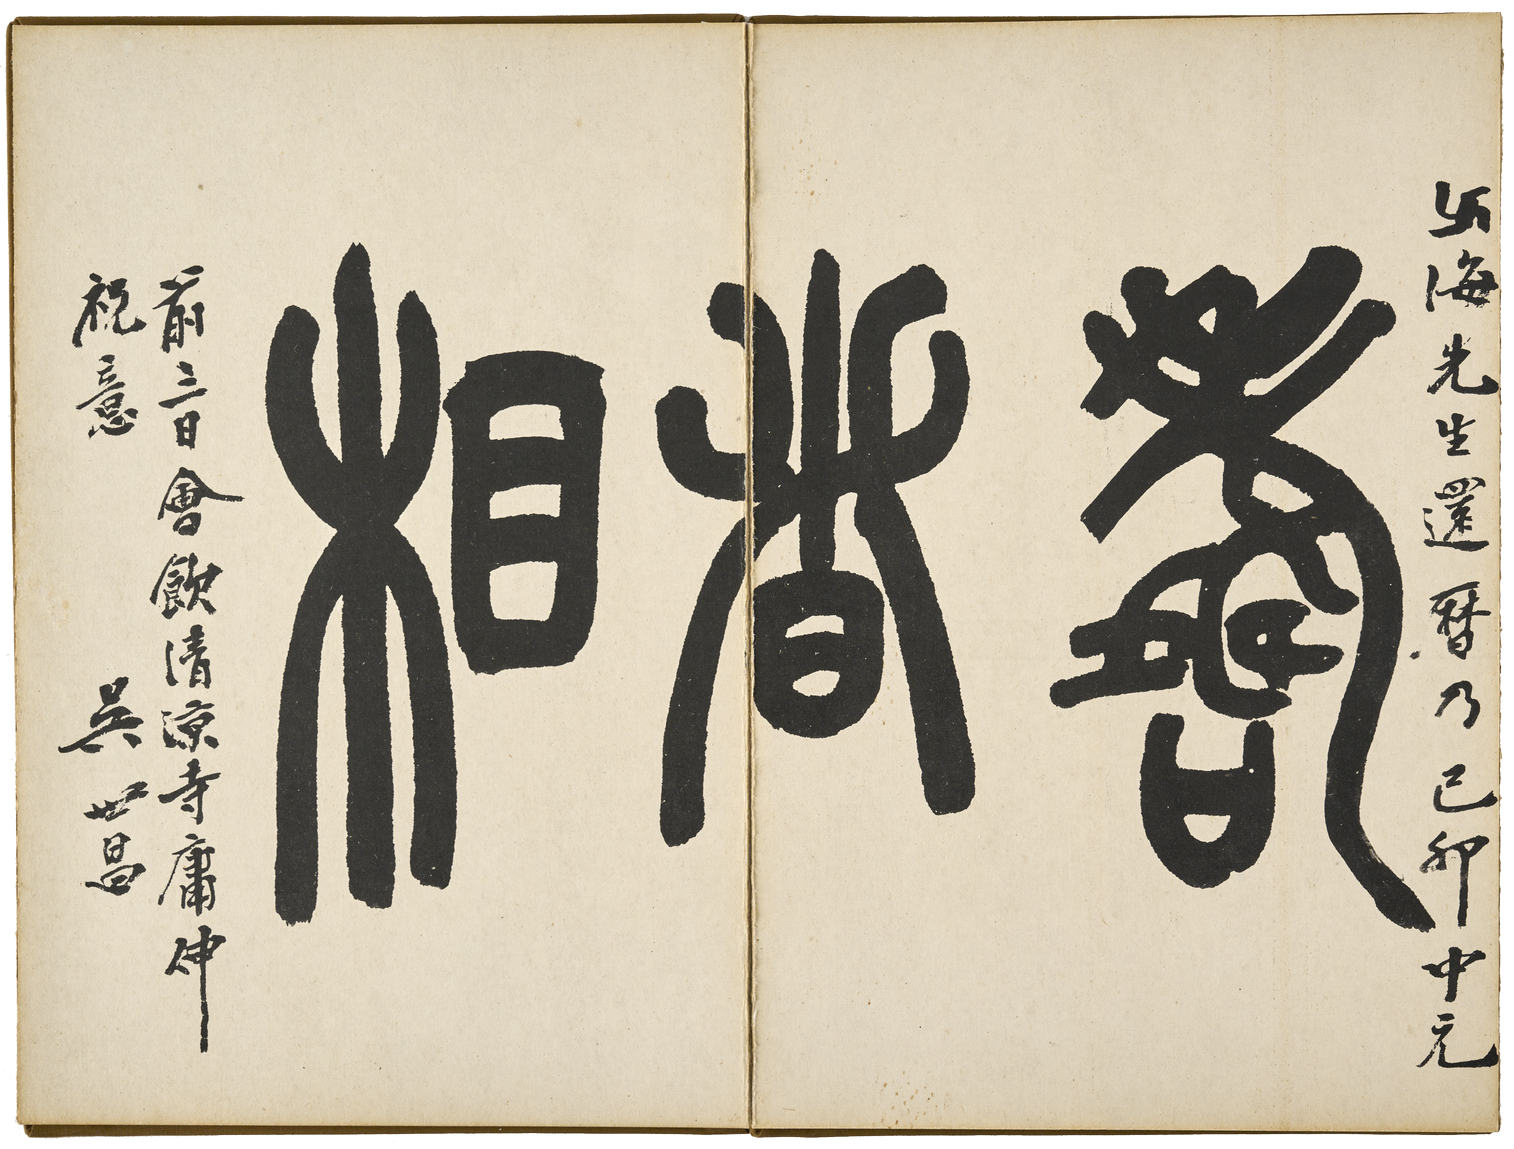 海先生還曆乃己卯中元
壽春相
前三日會飲清涼寺庸伸
祝意 吳世昌